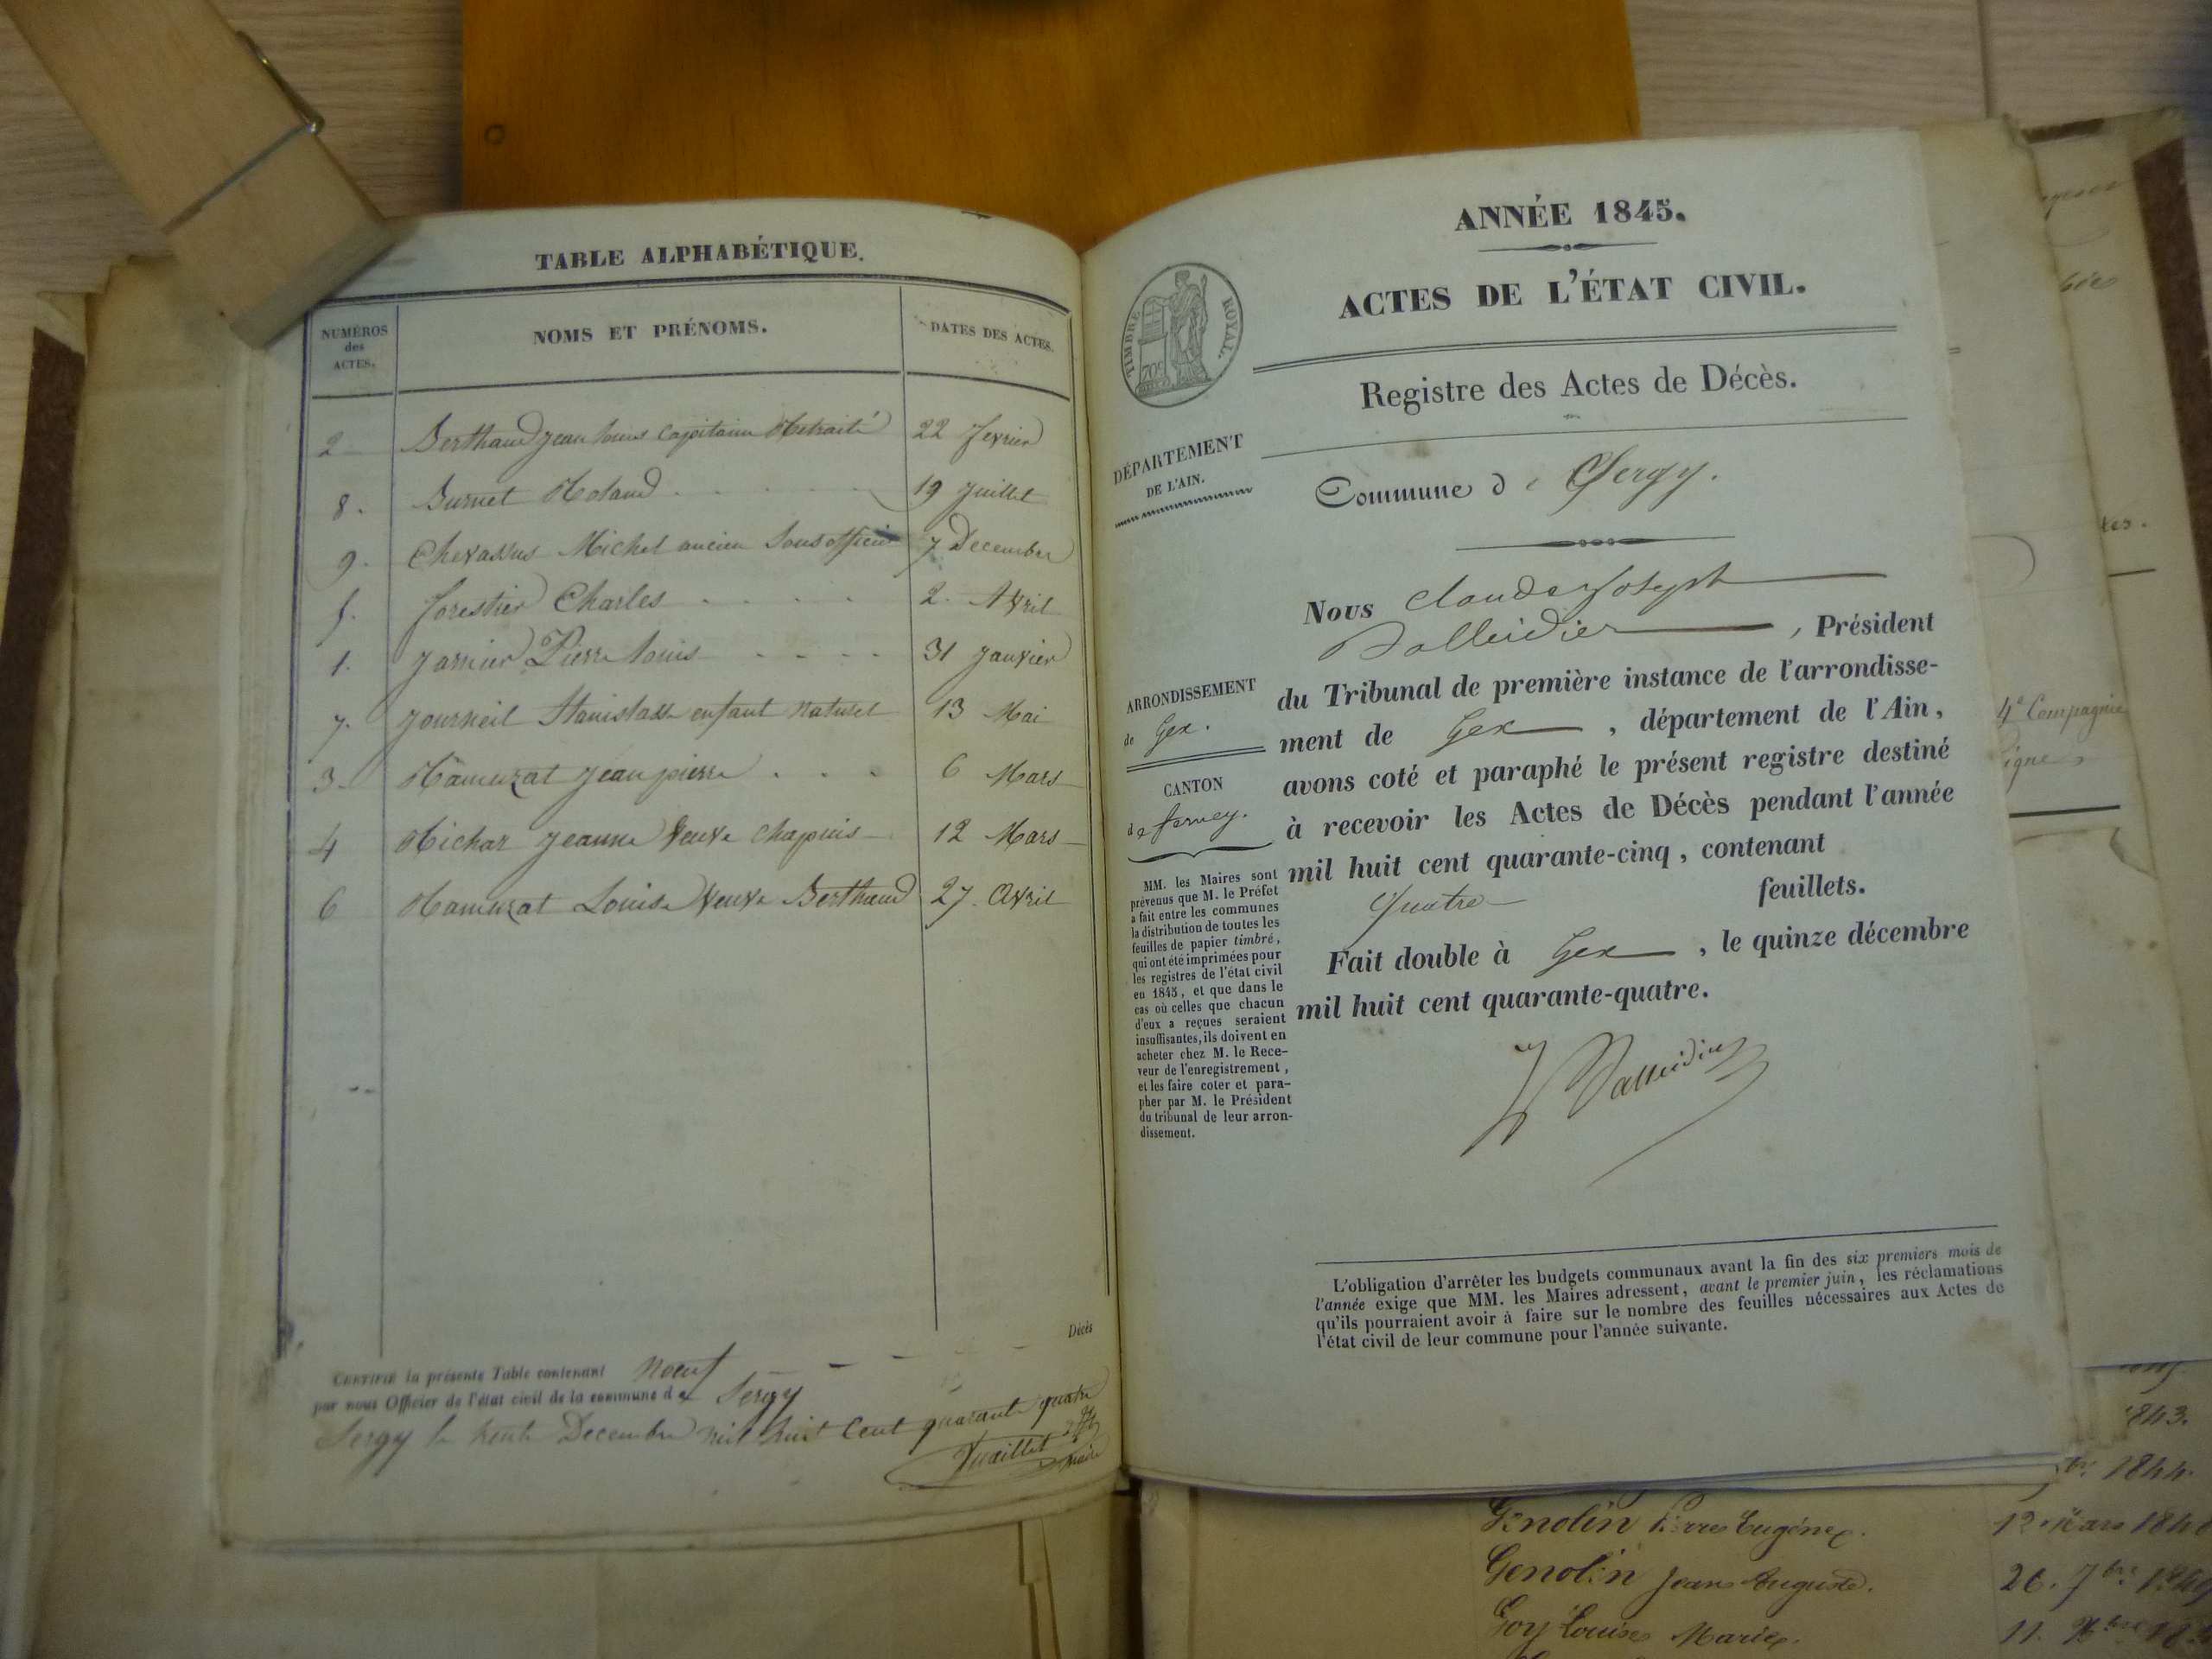 TABLE ALPHABÉTIQUE.
NUMÉROS
des
ACTES.
NOMS ET PRÉNOMS.
DATES DES ACTES.
2 Berthaud Jean Louis Capitaine Retraité 22 fevrier
8. Burnet Roland 19 Juillet
9. Chevassus Michel ancien Sousofficier 7 Decembre
5. forestier Charles 2. Avril
1. Jarnier Pierre Louis 31 Janvier
7. Journeil Stanislass enfant naturel 13 Mai
3. Ramuzat Jean pierre 6 Mars
4 Richar Jeanne Veuve Chapuis 12 Mars
6 Ramuzat Louise Veuve Berthaud 27. Avril
Décès
CERTIFIÉ la présente Table contenant noeuf
par nous Officier de l'état civil de la commune de Sergy
Sergy le trente Decembre mil huit Cent quarante quatre
ANNÉE 1845.
TIMBRE ROYAL.
70c
ACTES DE L'ÉTAT CIVIL.
Registre des Actes de Décès.
DÉPARTEMENT
DE L'AIN.
Commune de Sergy.
Nous Claude Joseph
, Président
du Tribunal de première instance de l'arrondisse-
ment de Gex , département de l'Ain,
avons coté et paraphé le présent registre destiné
à recevoir les Actes de Décès pendant l'année
mil huit cent quarante-cinq, contenant
quatre feuillets.
Fait double à Gex , le quinze décembre
mil huit cent quarante-quatre.
ARRONDISSEMENT
de Gex.
CANTON
de ferney.
MM. les Maires sont
prévenus que M. le Préfet
a fait entre les communes
la distribution de toutes les
feuilles de papier timbré,
qui ont été imprimées pour
les registres de l'état civil
en 1845, et que dans le
cas où celles que chacun
d'eux a reçues seraient
insuffisantes, ils doivent en
acheter chez M. le Rece-
veur de l'enregistrement,
et les faire coter et para-
pher par M. le Président
du tribunal de leur arron-
dissement.
L'obligation d'arrêter les budgets communaux avant la fin des six premiers mois de
l'année exige que MM. les Maires adressent, avant le premier juin, les réclamations
qu'ils pourraient avoir à faire sur le nombre des feuilles nécessaires aux Actes de
l'état civil de leur commune pour l'année suivante.
4e Compagnie
1843.
1844.
Genolin Pierre Eugène. 12. Mars
Genolin Jean Auguste. 26. 7bre
Goy Louise Marie. 11.